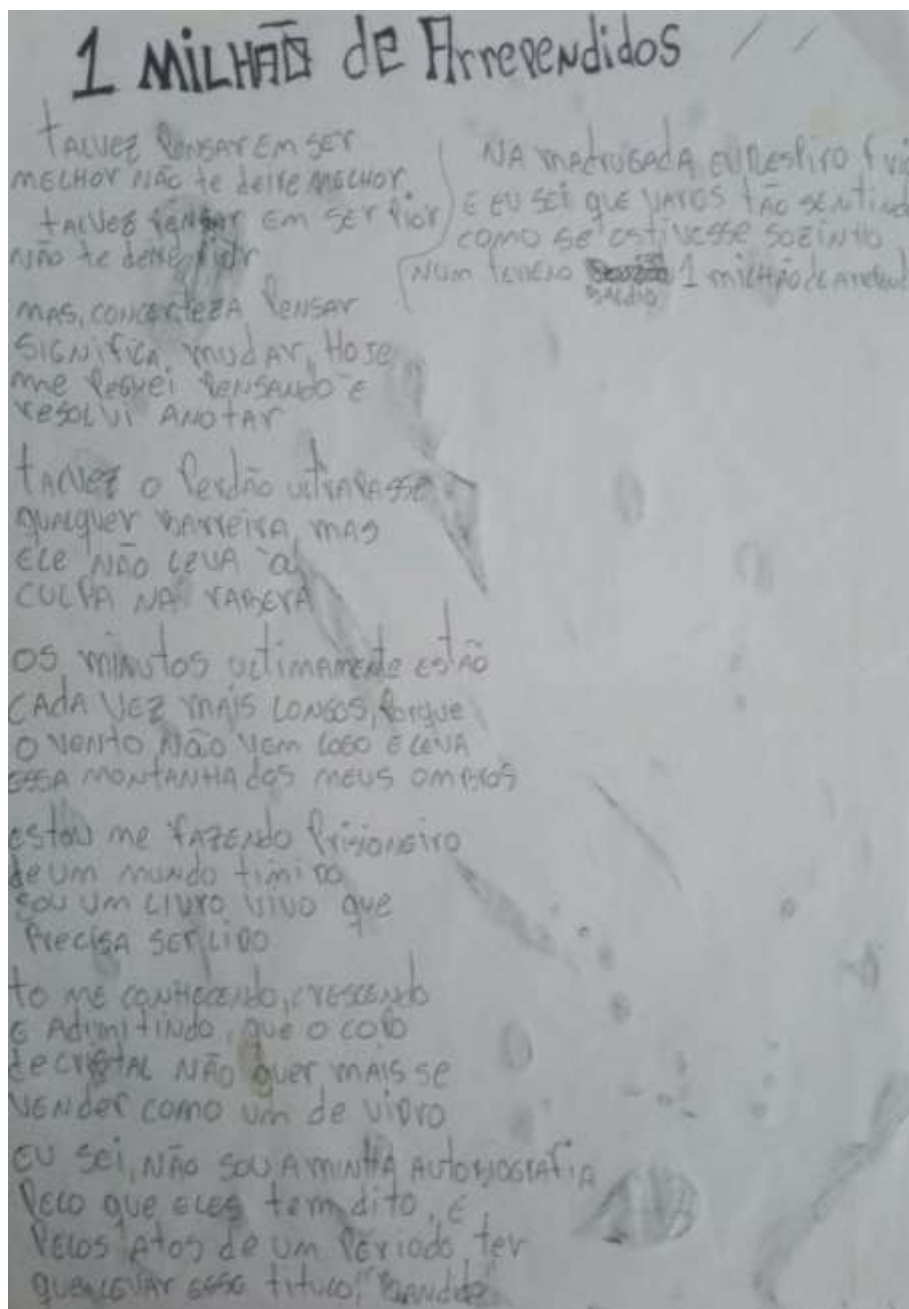 1 MILHÃO de Arrependidos
TALVEZ PENSAR EM SER
MELHOR NÃO te deixe MELHOR.
TALVEZ PENSAR EM SER PIOR
NÃO te deixe PIOR
MAS, CONCERTEZA PENSAR
SIGNIFICA MUDAR, HOJE
me PEGUEI PENSANDO E
RESOLVI ANOTAR
TALVEZ O PERDÃO ULTRAPASSE
QUALQUER BARREIRA, MAS
ELE NÃO LEVA a
CULPA NA RABERA
OS minutos ULTIMAMENTE ESTÃO
CADA VEZ MAIS LONGOS, PORQUE
O VENTO NÃO VEM LOGO E LEVA
ESSA MONTANHA dOS MEUS OMBROS
ESTOU me FAZENDO PRISIONEIRO
de UM MUNDO TIMIDO
SOU UM LIVRO VIVO QUE
PRECISA SER LIDO
TO ME CONHECENDO, CRESCENDO
E ADIMITINDO, QUE O COPO
de CRISTAL NÃO QUER MAIS SE
VENDER COMO UM DE VIDRO
EU SEI, NÃO SOU A MINHA AUTOBIOGRAFIA
PELO QUE ELES tem dito, E
PELOS ATOS de UM PERIODO ter
QUE LEVAR ESSE TITULO, "BANDIDO"
NA MADRUGADA EU RESPIRO
E EU SEI QUE VAROS TÃO
COMO SE ESTIVESSE SOZINHO
NUM BALDIO 1 MILHÃO de